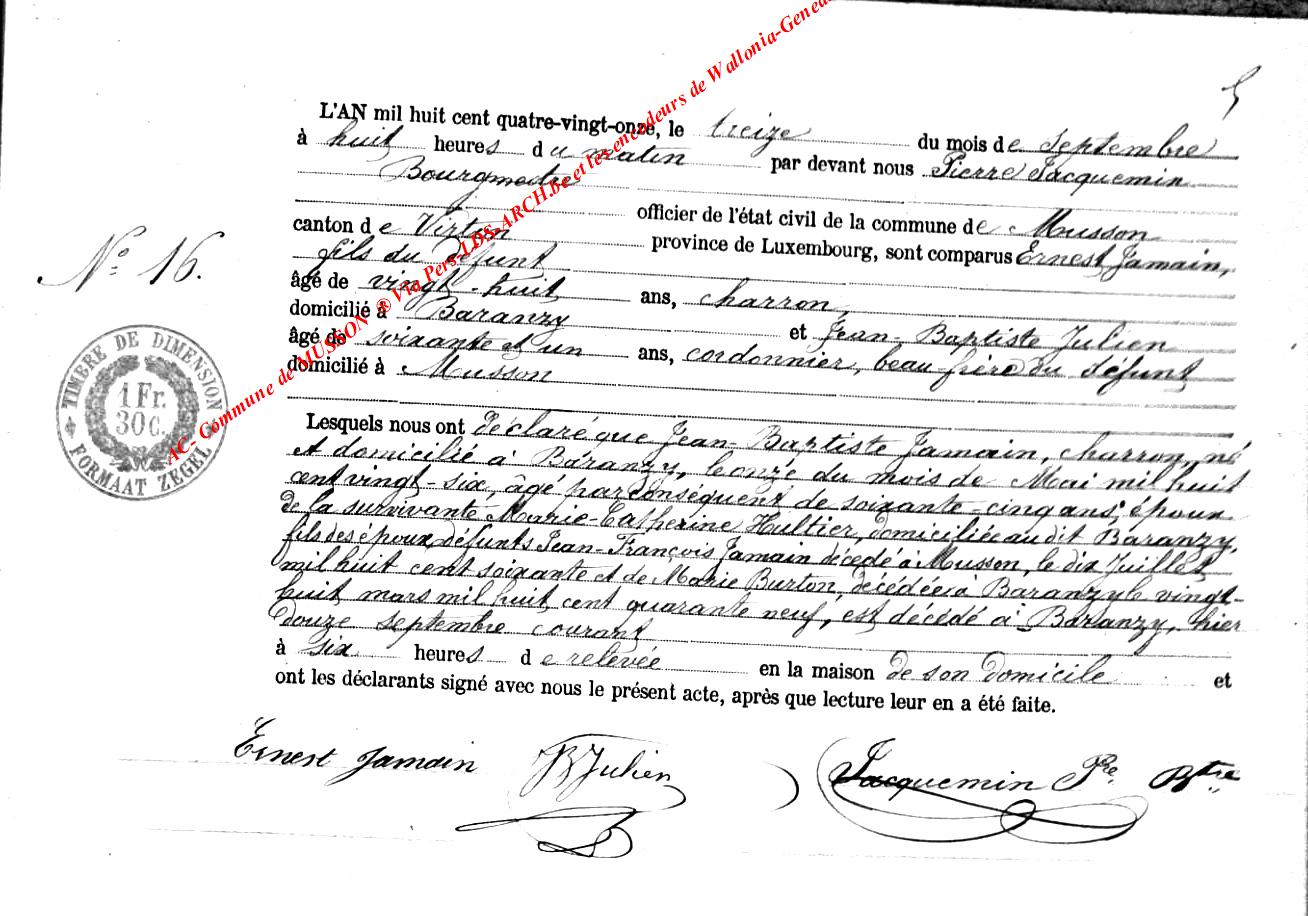 5
L'AN mil huit cent quatre-vingt-onze, le treize du mois de Septembre
à huit heures du matin par devant nous Pierre Jacquemin
Bourgmestre
officier de l'état civil de la commune de Musson
canton de Virton province de Luxembourg, sont comparus Ernest Jamain,
fils du défunt
âgé de vingt-huit ans, charron,
domicilié à Baranzy et Jean Baptiste Julien
âgé de soixante et un ans, cordonnier, beau-frère du défunt
domicilié à Musson
N° 16.
TIMBRE DE DIMENSION
1 Fr.
30 c.
FORMAAT ZEGEL
AC- Commune de MUSSON ® Via Pers-LDS-ARCH.be et les encodeurs de Wallonia-Genea
Lesquels nous ont déclaré que Jean-Baptiste Jamain, charron, né
et domicilié à Baranzy, le onze du mois de Mai mil huit
cent vingt-six, âgé par conséquent de soixante-cinq ans, époux
de la survivante Marie-Catherine Hultier, domiciliée au dit Baranzy,
fils des époux défunts Jean-François Jamain décédé à Musson, le dix Juillet
mil huit cent soixante et de Marie Burton, décédée à Baranzy le vingt-
huit mars mil huit cent quarante neuf, est décédé à Baranzy, hier
douze septembre courant
à six heures de relevée en la maison de son domicile et
ont les déclarants signé avec nous le présent acte, après que lecture leur en a été faite.
Ernest Jamain JB Julien Jacquemin Pre Bstre